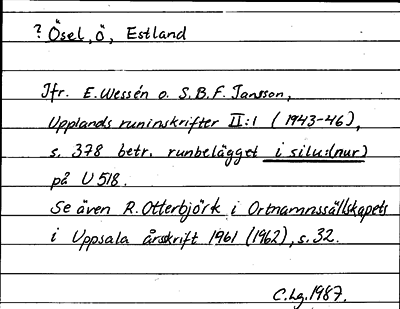 ? Ösel, ö, Estland
Jfr. E. Wessén o. S.B.F. Jansson,
Upplands runinskrifter II:1 (1943-46),
s. 378 betr. runbelägget i silu:(nur)
på U 518.
Se även R. Otterbjörk i Ortnamnssällskapets
i Uppsala årsskrift 1961 (1962), s. 32.
C.Lg. 1987.